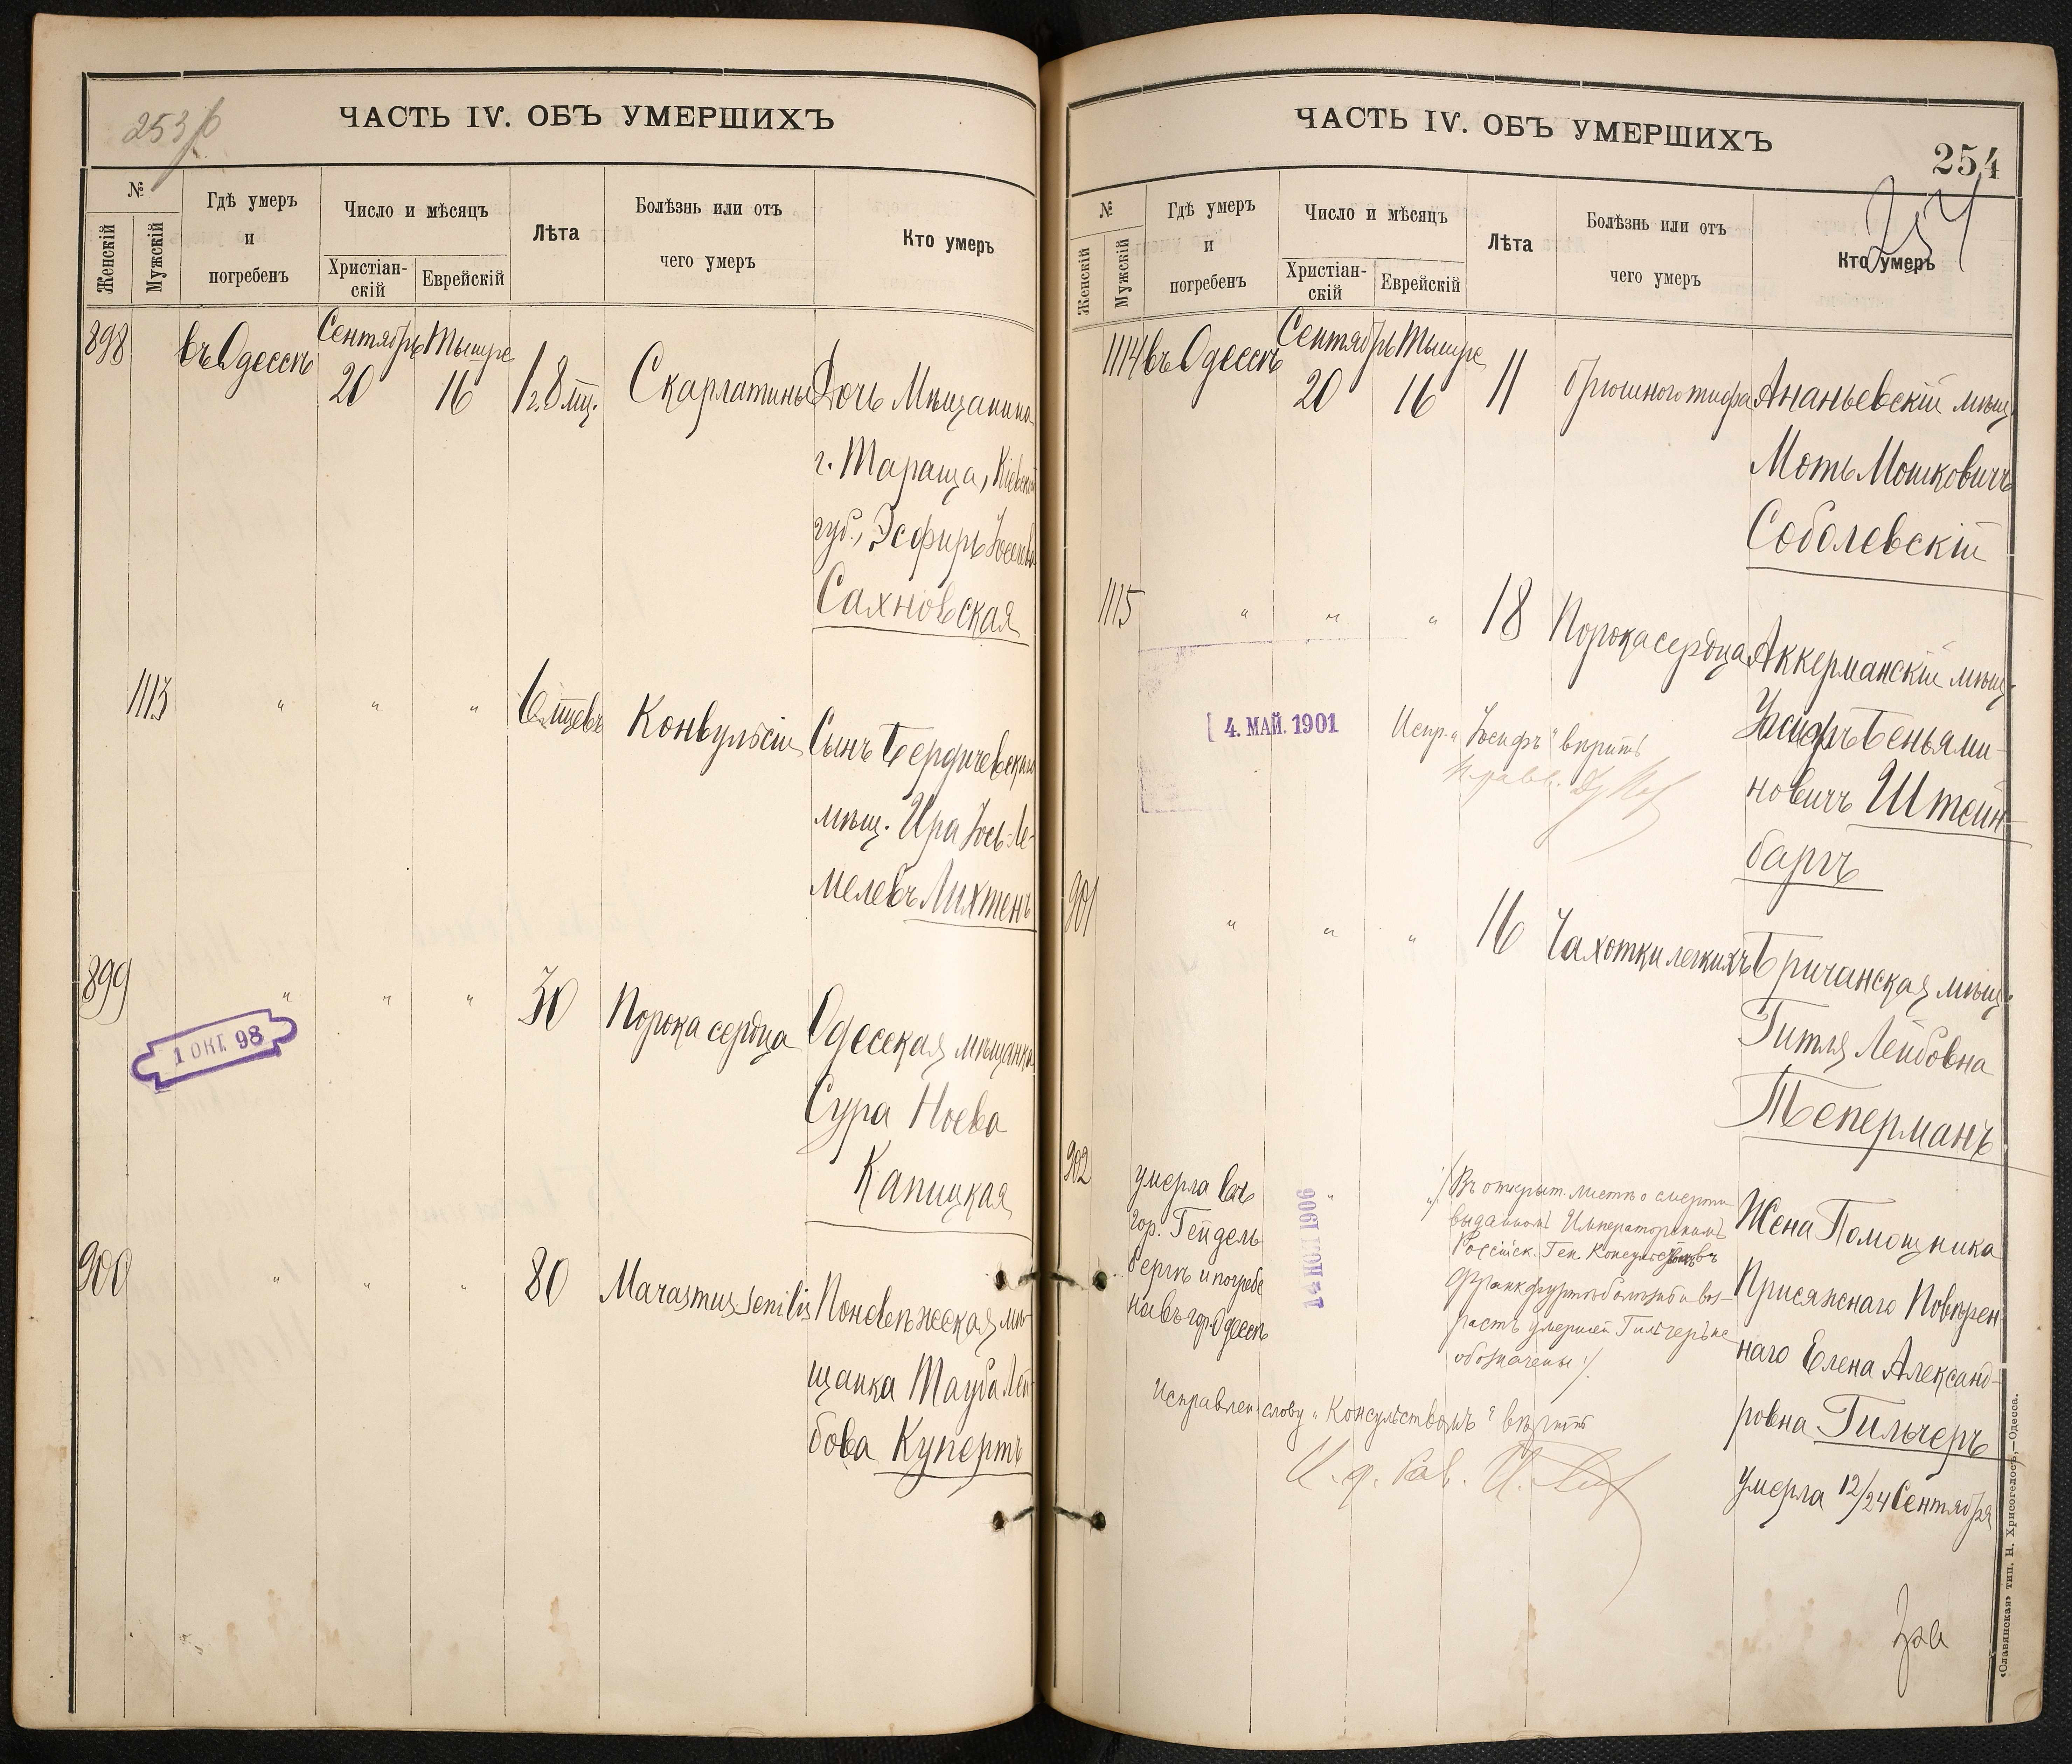 253 б
ЧАСТЬ IV. ОБЪ УМЕРШИХЪ
№
Женскій
Мужскій
Гдѣ умеръ
и
погребенъ
Число и мѣсяцъ
Христіан-
скій
Еврейскій
Лѣта
Болѣзнь или отъ
чего умеръ
Кто умеръ
898 въ Одессѣ Сентябрь 20 Тышре 16 1 г. 8 мц. Скарлатины Дочь Мѣщанина
г. Тараща, Кіевской
губ., Эсфирь
Сахновская
1113 " " " 6 мцевъ Конвульсіи Сынъ Бердичевскаго
мѣщ. Ира Іось-Ле-
мелевъ Лихтенъ
899 " " " 30 Порока сердца Одесская мѣщанка
Сура Ноева
Капицкая
1 ОКТ. 98
900 " " " 80 Marasmus senilis Поневѣжская мѣ-
щанка Тауба Лей-
бова Купертъ
ЧАСТЬ IV. ОБЪ УМЕРШИХЪ
254
254
№
Женскій
Мужскій
Гдѣ умеръ
и
погребенъ
Число и мѣсяцъ
Христіан-
скій
Еврейскій
Лѣта
Болѣзнь или отъ
чего умеръ
Кто умеръ
1114 въ Одессѣ Сентябрь 20 Тышре 16 11 брюшного тифа Ананьевскій мѣщ.
Моть Мошковичъ
Соболевскій
1115 " " " 18 Порока сердца Аккерманскій мѣщ.
Іосифъ Беньями-
новичъ Штейн-
баргъ
4. МАЙ. 1901
Испр. "Іосифъ" вѣрить
901 " " " 16 Чахотки легкихъ Бричанская мѣщ.
Гитля Лейбовна
Теперманъ
902 умерла въ
гор. Гейдель-
бергѣ и погребе
на въ гор. Одессѣ
" "
1906
/: Въ открыт. листѣ о смерти
выданномъ Императорскимъ
Россійск. Ген. Консульствомъ
Франкфуртѣ болѣзнь и воз-
растъ умершей Гильчеръ не
обозначены :/
Жена Помощника
Присяжнаго Повѣрен-
наго Елена Александ-
ровна Гильчеръ
умерла 12/24 Сентября
Исправлен. слову "Консульствомъ" вѣрить
И. д. Рав.
«Славянская» тип. Н. Хрисогелосъ,—Одесса.